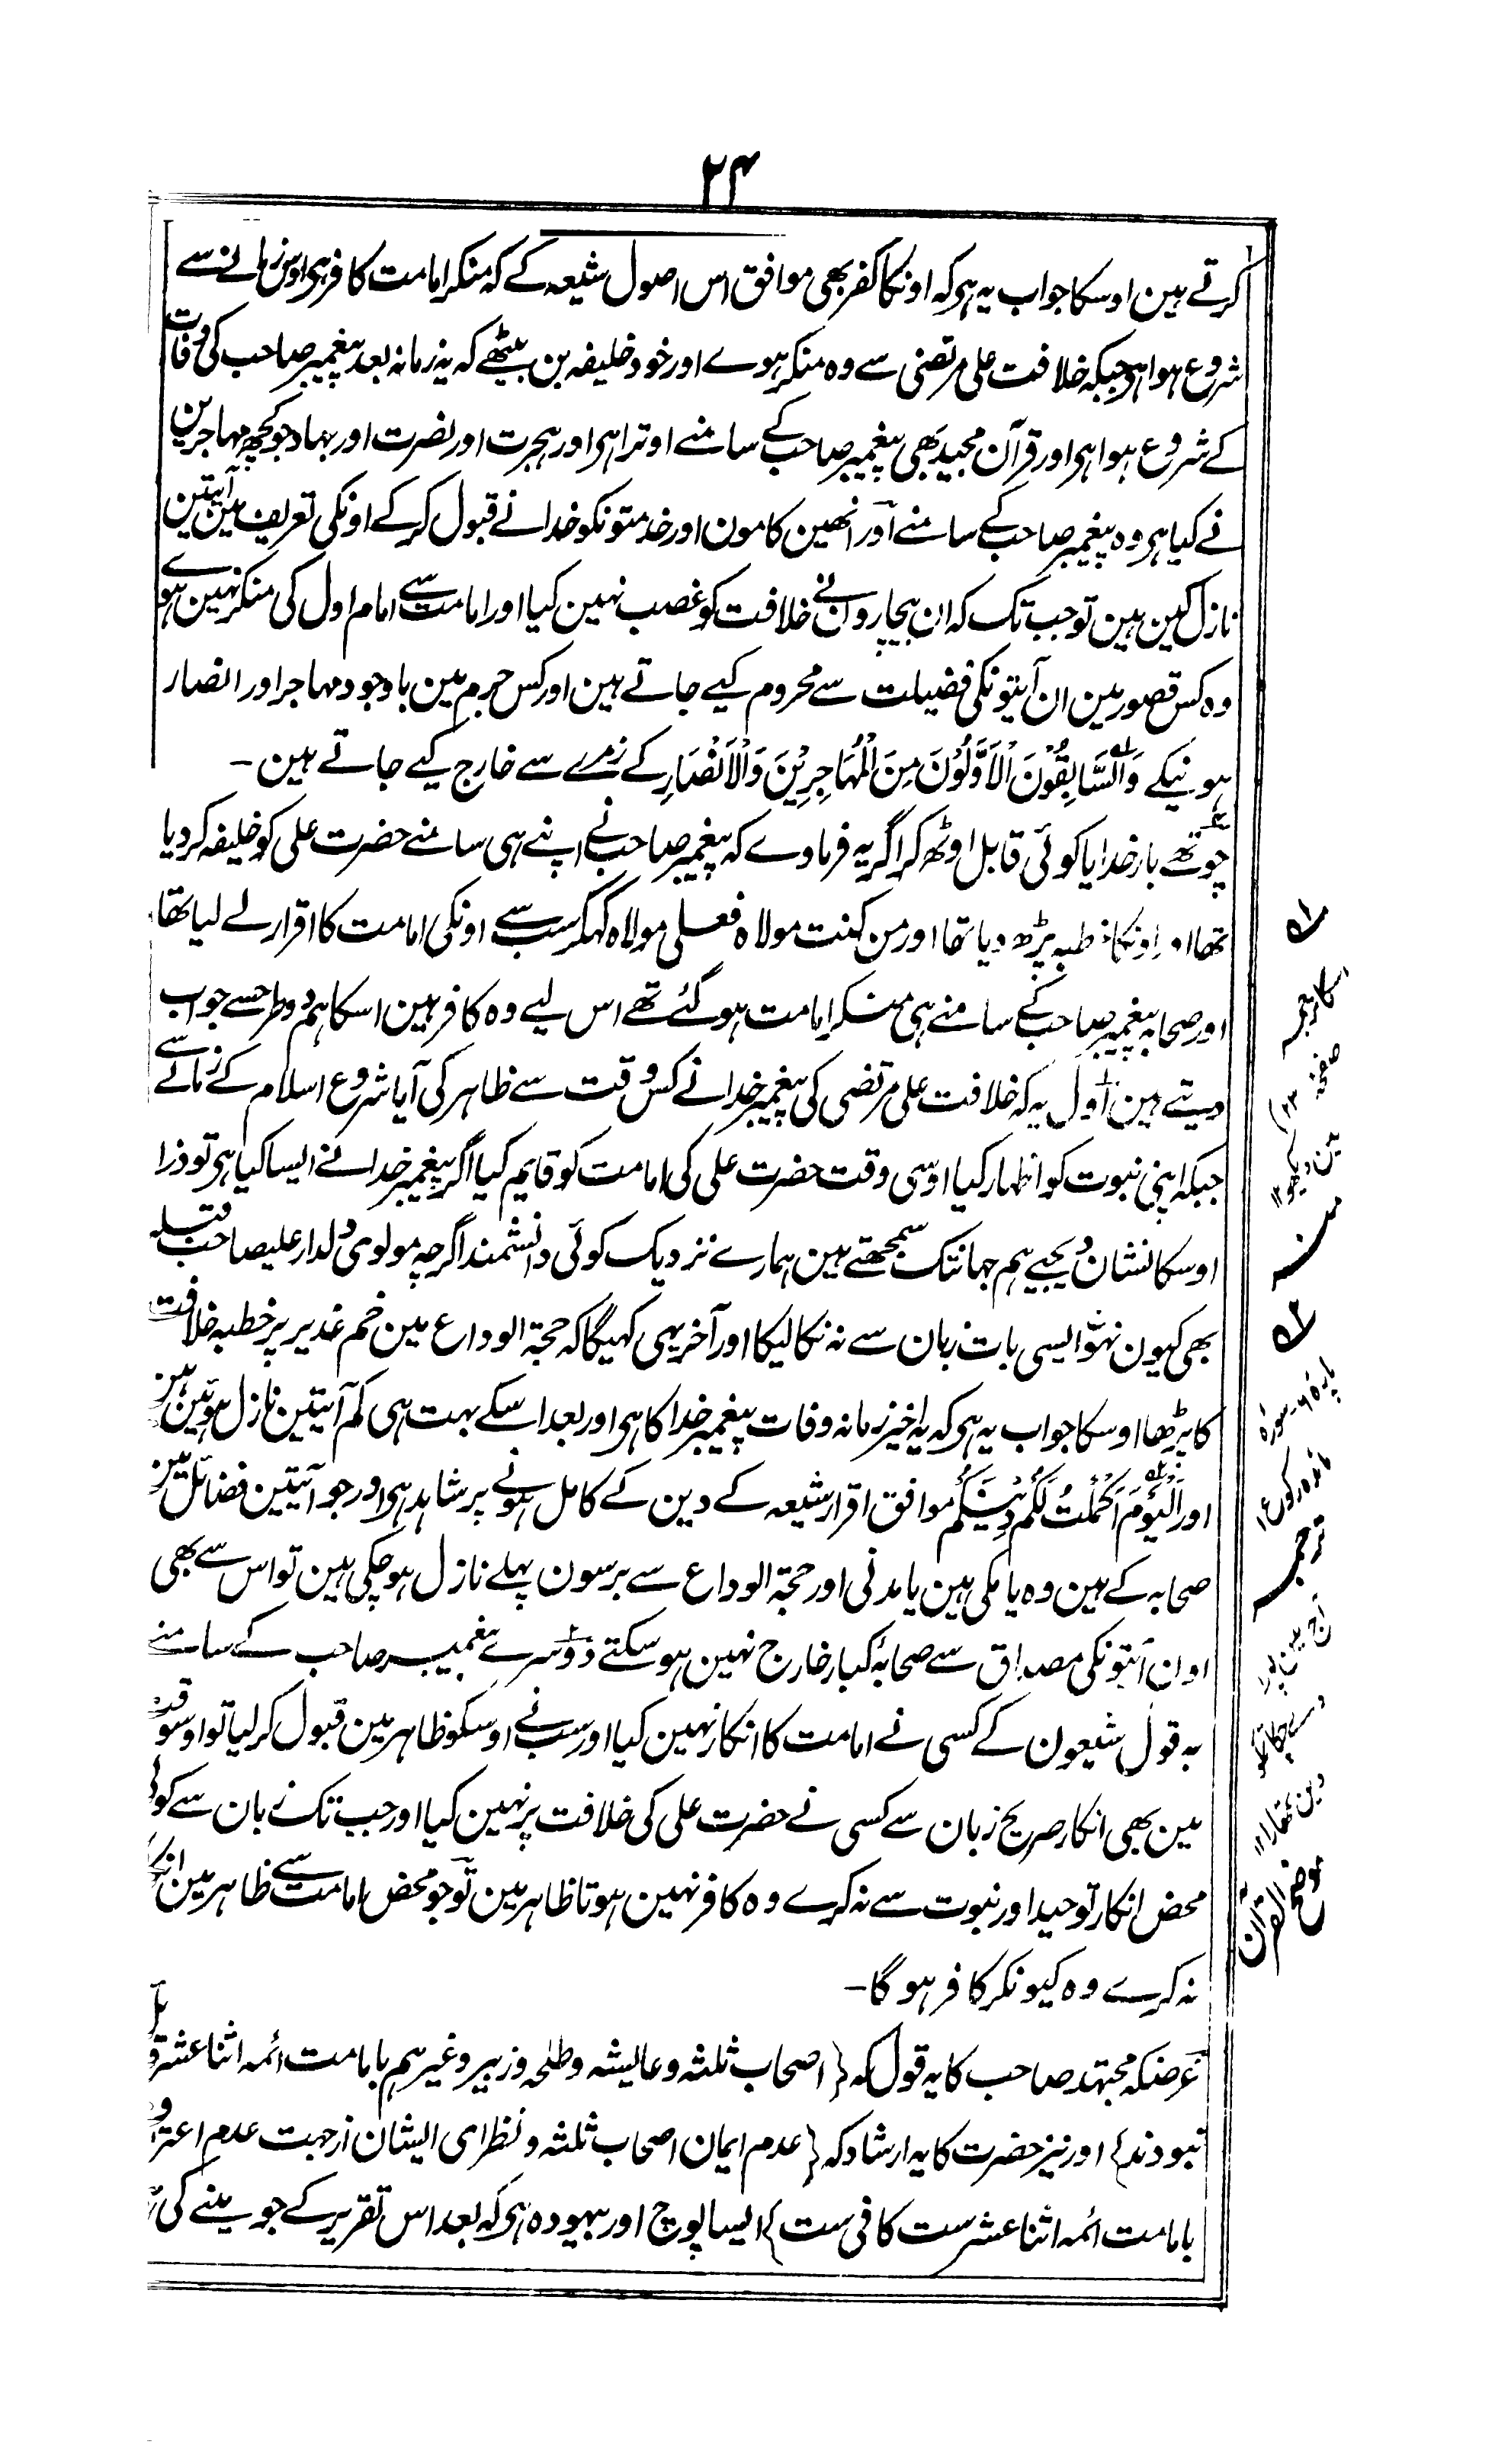 ۲۴
کرتے ہین اوسکا جواب یہ ہی کہ اونکا کفر بھی موافق اس اصول شیعہ کے کہ منکر امامت کافر ہی اوس زمانے سے
شروع ہوا ہی جبکہ خلافت علی مرتضی سے وہ منکر ہوے اور خود خلیفہ بن بیٹھے کہ یہ زمانہ بعد پیغمبر صاحب کی وفات
کے شروع ہوا ہی اور قرآن مجید بھی پیغمبر صاحب کے سامنے اوترا ہی اور ہجرت اور نصرت اور جہاد جو کچھ مہاجرین
نے کیا ہی وہ پیغمبر صاحب کے سامنے اور انھین کامون اور خدمتونکو خدا نے قبول کرکے اونکی تعریف مین آیتین
نازل کین ہین تو جب تک کہ ان بیچارون نے خلافت کو غصب نہین کیا اور امامت سے امام اول کی منکر نہین ہوے
وہ کس قصور مین ان آیتونکی فضیلت سے محروم کیے جاتے ہین اور کس جرم مین باوجود مہاجر اور انصار
ہونیکے وَالسَّابِقُوْنَ الْاَوَّلُوْنَ مِنَ الْمُهَاجِرِيْنَ وَالْاَنْصَارِ کے زمرے سے خارج کیے جاتے ہین ۔
چوتھے بار خدایا کوئی قابل اوٹھ کر اگر یہ فرماوے کہ پیغمبر صاحب نے اپنے ہی سامنے حضرت علی کو خلیفہ کر دیا
تھا اور اونکا خطبہ پڑھ دیا تھا اور من کنت مولاہ فعلی مولاہ کہکر سب سے اونکی امامت کا اقرار لے لیا تھا
اور صحابہ پیغمبر صاحب کے سامنے ہی منکر امامت ہو گئے تھے اس لیے وہ کافر ہین اسکا ہم دو طرح سے جواب
دیتے ہین اول یہ کہ خلافت علی مرتضی کی پیغمبر خدا نے کس وقت سے ظاہر کی آیا شروع اسلام کے زمانے سے
جبکہ اپنی نبوت کو اظہار کیا اوسی وقت حضرت علی کی امامت کو قایم کیا اگر پیغمبر خدا نے ایسا کیا ہی تو ذرا
اوسکا نشان دیجیے ہم جہانتک سمجھتے ہین ہمارے نزدیک کوئی دانشمند اگرچہ مولوی دلدار علیصاحب قبلہ
بھی کیون نہو ایسی بات زبان سے نہ نکالیگا اور آخر یہی کہیگا کہ حجۃ الوداع مین خم غدیر پر خطبہ خلافت
کا پڑھا اوسکا جواب یہ ہی کہ یہ اخیر زمانہ وفات پیغمبر خدا کا ہی اور بعد اسکے بہت ہی کم آیتین نازل ہوئین ہین
اور اَلْيَوْمَ اَكْمَلْتُ لَكُمْ دِيْنَكُمْ موافق اقرار شیعہ کے دین کے کامل ہونے پر شاہد ہی اور جو آیتین فضائل مین
صحابہ کے ہین وہ یا مکی ہین یا مدنی اور حجۃ الوداع سے برسون پہلے نازل ہو چکی ہین تو اس سے بھی
اون آیتونکی مصداق سے صحابۂ کبار خارج نہین ہو سکتے دوسرے پیغمبر صاحب کے سامنے
بہ قول شیعون کے کسی نے امامت کا انکار نہین کیا اور سب نے اوسکو ظاہر مین قبول کر لیا تو اوسوقت
مین بھی انکار صریح زبان سے کسی نے حضرت علی کی خلافت پر نہین کیا اور جب تک زبان سے کوئی
محض انکار توحید اور نبوت سے نہ کرے وہ کافر نہین ہوتا ظاہر مین تو جو محض امامت سے ظاہر مین انکار
نہ کرے وہ کیونکر کافر ہو گا ۔
غرضکہ مجتہد صاحب کا یہ قول کہ {اصحاب ثلثہ و عایشہ و طلحہ و زبیر و غیرہم بامامت ائمہ اثنا عشر
نبودند} اور نیز حضرت کا یہ ارشاد کہ {عدم ایمان اصحاب ثلثہ و نظرای ایشان از جہت عدم
بامامت ائمہ اثنا عشر ست کافی ست} ایسا پوچ اور بیہودہ ہی کہ بعد اس تقریر کے جو مینے کی
لہ
اسکا ترجمہ
صفحہ ۲۳
مین دیکھو ۱۲
منہ
لہ
پارہ ۶ ۔ سورہ
مائدہ رکوع ۱
ترجمہ
آج مین پورا
دے چکا تمکو
دین تمھارا ۱۲
موضح القرآن